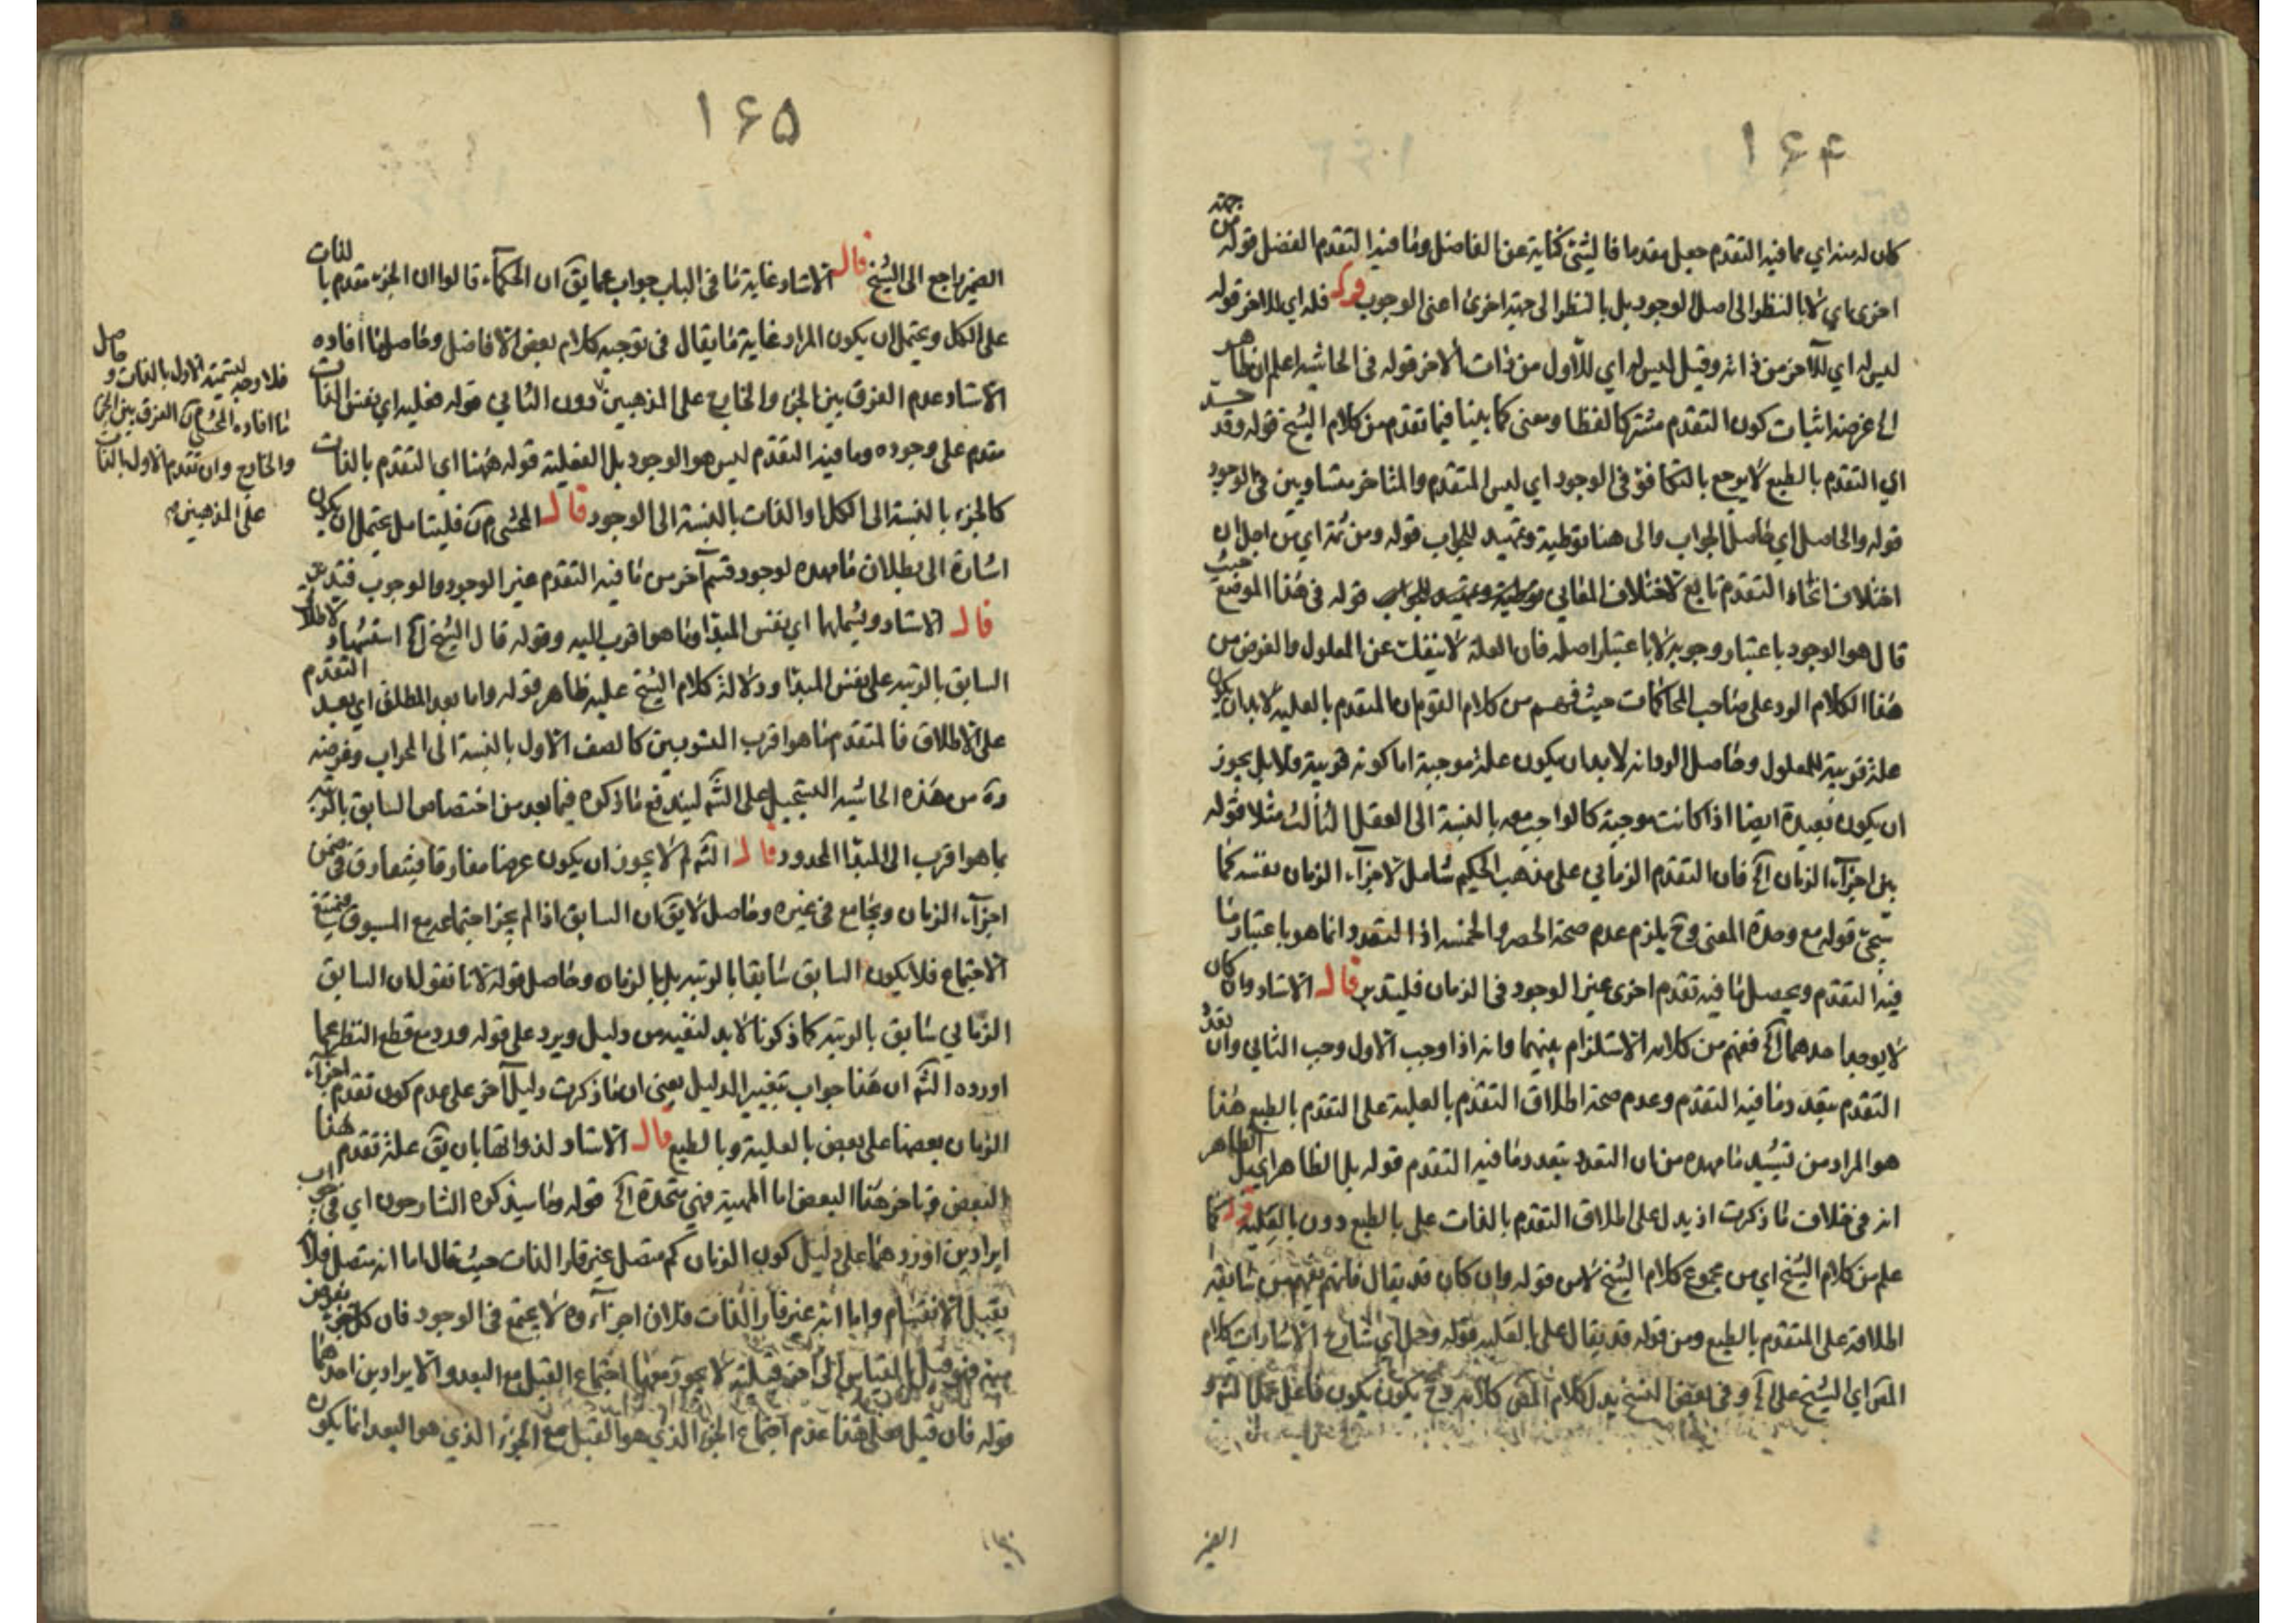 ۱۶۴
كان له منه اي مما فيه التقدم جعل مقدما فالشئ كناية عن الفاضل وما فيه التقدم الفضل قوله من جهة
اخرى اي لا بالنظر الى اصل الوجود بل بالنظر الى جهة اخرى اعنى الوجوب قوله فله اي للاخر قوله
ليس له اي للآخر من ذاته وقيل ليس له اي للاول من ذات الاخر قوله في الحاشية اعلم ان ظاهر
الخ غرضه اثبات كون التقدم مشتركا لفظا ومعنى كما بينا فيما تقدم من كلام الشيخ قوله وقد
اي التقدم بالطبع لا يرجع بالتكافؤ في الوجود اي ليس المتقدم والمتاخر متساويين في الوجود
قوله والحاصل اي حاصل الجواب والى هنا توطية وتمهيد للجواب قوله ومن ثمة اي من اجل ان
اختلاف انحاء التقدم تابع لاختلاف المعانى قوله في هذا الموضع حيث
قال هو الوجود باعتبار وجوبه لا باعتبار اصله فان العلة لا ينفك عن المعلول والغرض من
هذا الكلام الرد على صاحب المحاكمات حيث فهم من كلام القوم ان المتقدم بالعلية لابد ان يكون
علة قريبة للمعلول وحاصل الرد انه لابد ان يكون علة موجبة اما كونه قريبة فلا بل يجوز
ان يكون بعيدة ايضا اذا كانت موجبة كالواجب بالنسبة الى العقل الثالث مثلا قوله
بين اجزآء الزمان آه فان التقدم الزماني على مذهب الحكيم شامل لاجزآء الزمان بنفسه كما
سيجئ قوله مع وحدة المعنى وح يلزم عدم صحة الحصر في الخمسة اذ التعدد انما هو باعتبار ما
فيه التقدم ويحصل ما فيه تقدم اخرى غير الوجود في الزمان فليتدبر قال الاستاد وان كان
لا يوجد احدهما آه ففهم من كلامه الاستلزام بينهما وانه اذا وجب الاول وجب الثاني وان تعدد
التقدم بتعدد ما فيه التقدم وعدم صحة اطلاق التقدم بالعلية على التقدم بالطبع هذا
هو المراد من تشييد ما مهده من ان التقدم بتعدد ما فيه التقدم قوله بل الظاهر اي بل الظاهر
انه في خلاف ما ذكرت اذ يدل على اطلاق التقدم بالذات على بالطبع دون بالعلية قوله كما
علم من كلام الشيخ اي من مجموع كلام الشيخ لا من قوله وان كان قد يقال فانهم يفهم من سابقه
اطلاقه على المتقدم بالطبع ومن قوله قد يقال على بالعلية قوله وحمل اي شارح الاشارات كلام
المص اي الشيخ على آه وفي بعض النسخ بدل كلام المص كلامه وح يكون فاعل حمل الش و
الضمير
۱۶۵
الضمير راجع الى الشيخ قال الاستاد غاية ما في الباب جواب عما يق ان الحكمآء قالوا ان الجزء مقدم بالذات
على الكل ويحتمل ان يكون المراد غاية ما يقال في توجيه كلام بعض الافاضل وحاصل ما افاده
الاستاد عدم الفرق بين الجزء والخارج على المذهبين دون الثاني قوله فعليه اي نفس الذات
مقدم على وجوده وما فيه التقدم ليس هو الوجود بل الفعلية قوله ههنا اي التقدم بالذات
كالجزء بالنسبة الى الكل او الذات بالنسبة الى الوجود قال المحشي فليتامل يحتمل ان يكون
اشارة الى بطلان ما مهده لوجود قسم آخر من ما فيه التقدم غير الوجود والوجوب فتدبر
قال الاستاد ويشملهما اي نفس المبدا وما هو اقرب اليه وقوله قال الشيخ آه استشهاد لاطلاق
السابق بالرتبة على نفس المبدا ودلالة كلام الشيخ عليه ظاهر قوله واما بعد المطلق اي بعد التقدم
على الاطلاق فالمتقدم ما هو اقرب المنسوبين كالصف الاول بالنسبة الى المحراب وغرضه
من هذه الحاشية التسجيل على الش ليندفع ما ذكره فيما بعد من اختصاص السابق بالرتبة
بما هو اقرب الى المبدا المحدود قال الش لم لا يجوز ان يكون عرضا مفارقا فيتفارق في ضمن
اجزآء الزمان ويجامع في غيره وحاصل لا يق ان السابق اذا لم يجز اجتماعه مع المسبوق
الاجتماع فلا يكون السابق سابقا بالرتبة بل بالزمان وحاصل قوله لانا نقول ان السابق
الزماني سابق بالرتبة كما ذكرنا لابد لنفيه من دليل ويرد على قوله ورد مع قطع النظر عما
اورده الش ان هذا جواب بتغيير الدليل يعنى ان ما ذكرت دليل آخر على عدم كون تقدم اجزآء
الزمان بعضها على بعض بالعلية وبالطبع قال الاستاد لذواتها بان يق علة تقدم هذا
البعض وتاخر هذا البعض اما المهية فهي متحدة آه قوله وما سيذكره الشارحون اي في جواب
ايرادين اوردهما على دليل كون الزمان كم متصل غير قار الذات حيث قال اما انه متصل فلانه
يقبل الانقسام واما انه غير قار الذات فلان اجزآءه لا يجتمع في الوجود فان كل جزء يفرض
منه فهو قبل بالقياس الى آخر قبلية لا يجوز معها اجتماع القبل مع البعد والايرادين احدهما
قوله فان قيل فعلى هذا عدم اجتماع الجزء الذي هو القبل مع الجزء الذي هو البعد انما يكون
فلا وجه لتسمية الاول بالذات وحاصل
ما افاده المحشي الفرق بين الجزء
والخارج وان تقدم الاول بالذات
على المذهبين